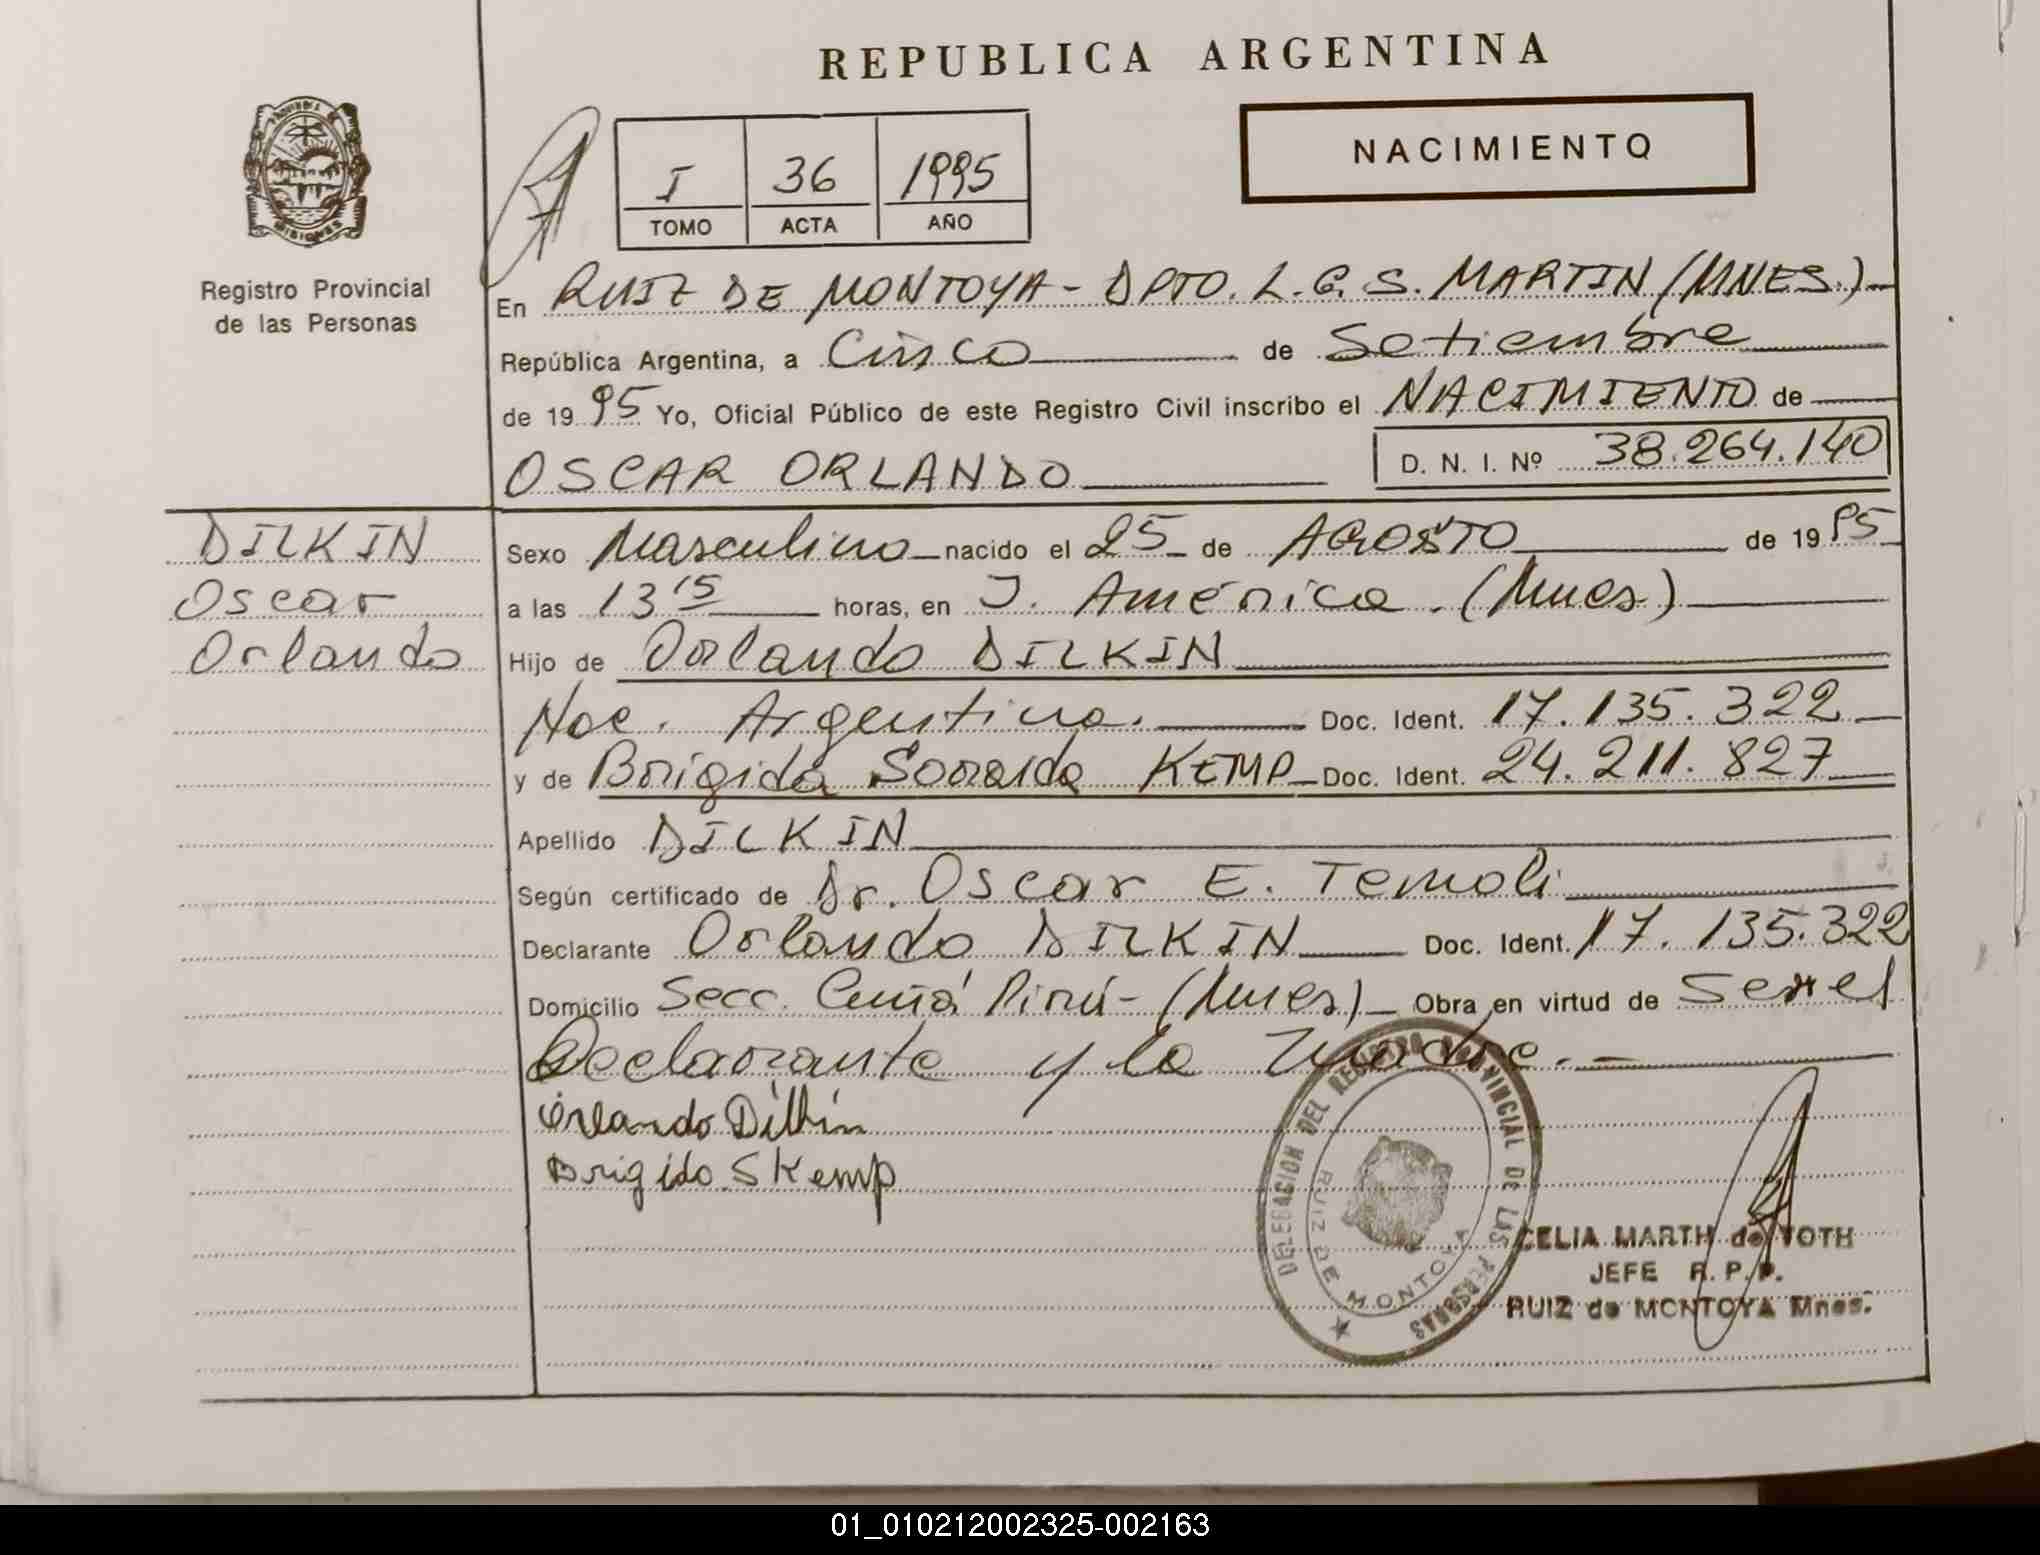 REPUBLICA ARGENTINA
NACIMIENTO
I 36 1995
TOMO ACTA AÑO
Registro Provincial
de las Personas
En RUIZ DE MONTOYA - DPTO. L.G.S. MARTIN (MNES.)
República Argentina, a Cinco de Setiembre
de 19 95 Yo, Oficial Público de este Registro Civil inscribo el NACIMIENTO de
OSCAR ORLANDO D. N. I. Nº 38.264.140
DILKIN
Oscar
Orlando
Sexo Masculino nacido el 25 de AGOSTO de 19 95
a las 13 15 horas, en J. América. (Mnes)
Hijo de Orlando DILKIN
Nac. Argentina. Doc. Ident. 17.135.322
y de Brígida Soraida KEMP Doc. Ident. 24.211.827
Apellido DILKIN
Según certificado de Dr. Oscar E. Temoli
Declarante Orlando DILKIN Doc. Ident. 17.135.322
Domicilio Secc. Cuñá Pirú - (Mnes) Obra en virtud de ser el
Declarante y la Madre.
Orlando Dilkin
Brigido S Kemp
DELEGACION DEL REGISTRO PROVINCIAL DE LAS PERSONAS
RUIZ DE MONTOYA
CELIA MARTH de TOTH
JEFE R. P. P.
RUIZ de MONTOYA Mnes.
01_010212002325-002163